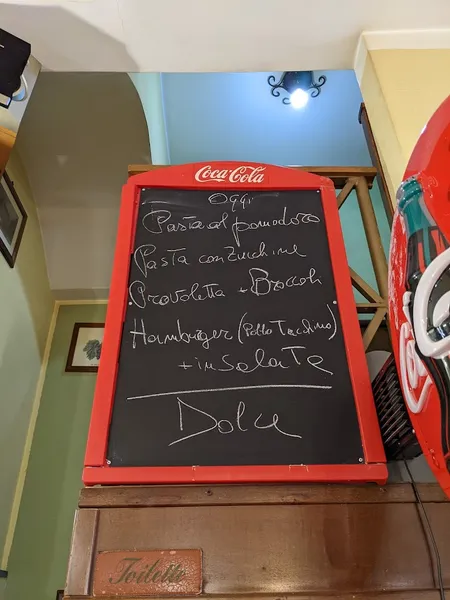 Coca-Cola
Oggi
Pasta al pomodoro
Pasta con Zucchine
Provoletta + Broccoli
Hamburger (Pollo Tacchino)
+ insalate
Dolce
Toilette